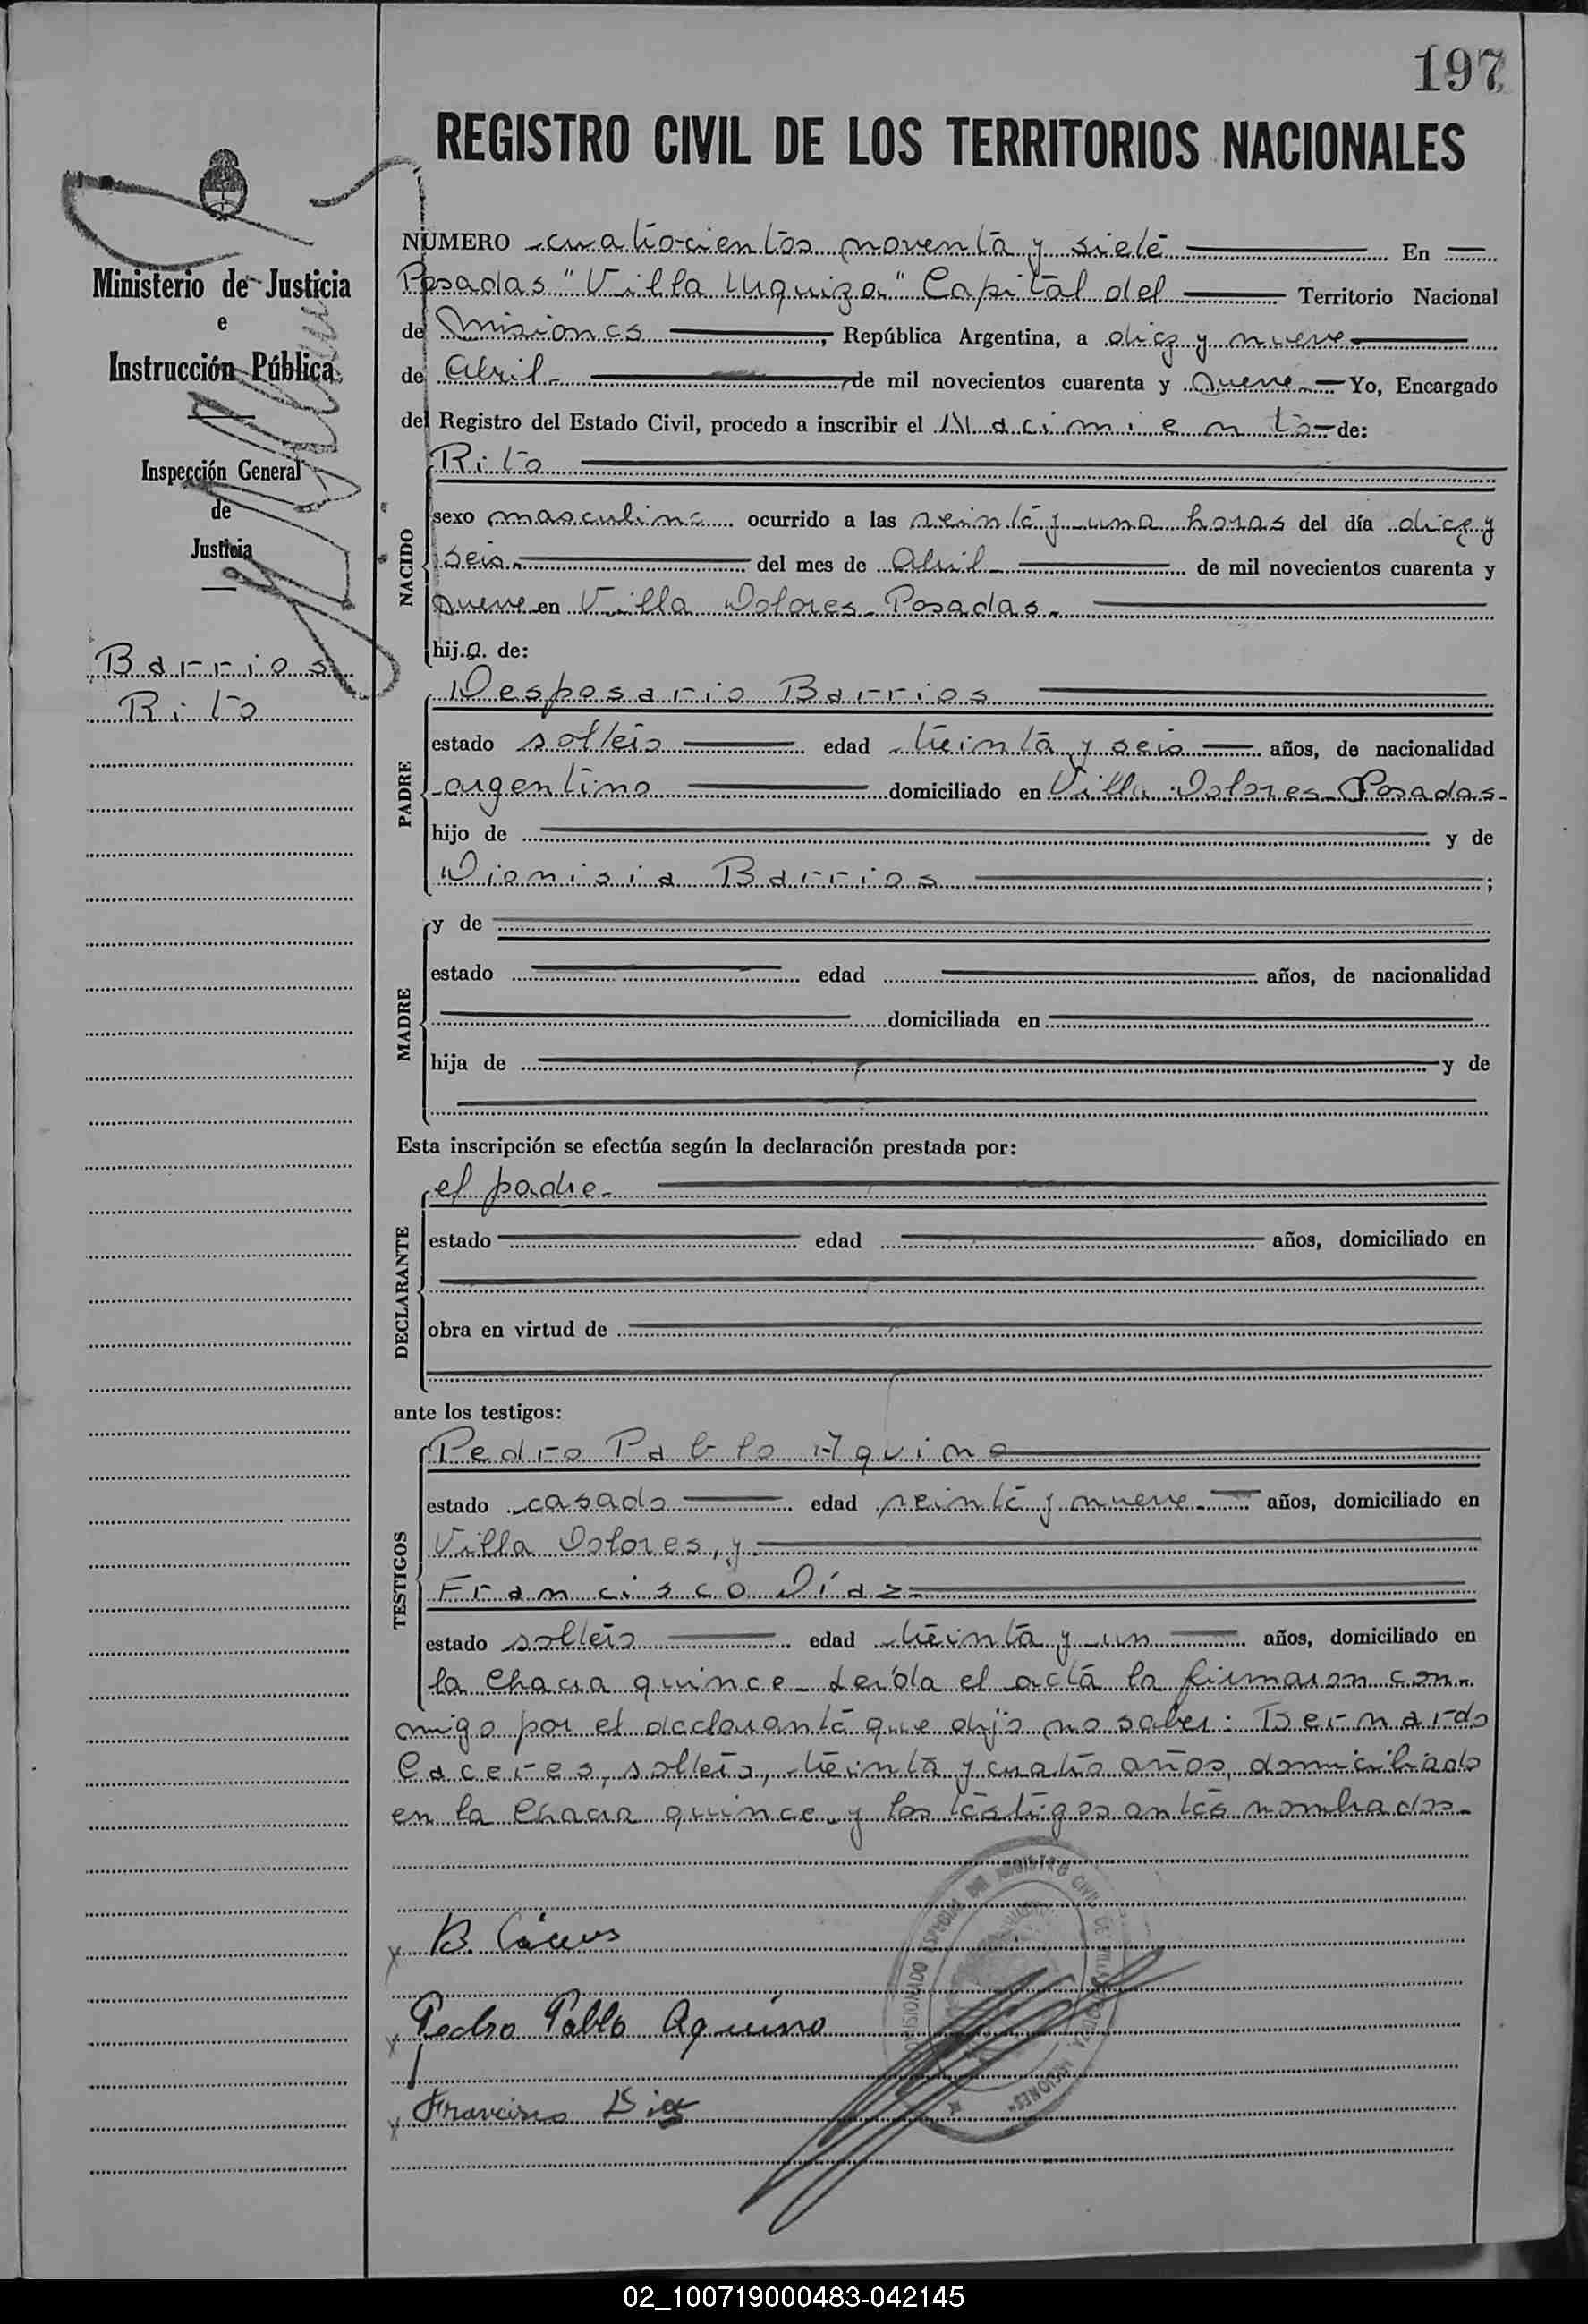 197
REGISTRO CIVIL DE LOS TERRITORIOS NACIONALES
Ministerio de Justicia
e
Instrucción Pública
Inspección General
de
Justicia
Barrios
Rito
NÚMERO cuatrocientos noventa y siete En
Posadas "Villa Urquiza" Capital del Territorio Nacional
de Misiones, República Argentina, a diez y nueve
de Abril de mil novecientos cuarenta y nueve Yo, Encargado
del Registro del Estado Civil, procedo a inscribir el Nacimiento de:
NACIDO
Rito
sexo masculino ocurrido a las veinte y una horas del día diez y
seis. del mes de Abril de mil novecientos cuarenta y
nueve en Villa Dolores - Posadas.
hijo. de:
PADRE
Desposorio Barrios
estado soltero edad treinta y seis años, de nacionalidad
argentino domiciliado en Villa Dolores - Posadas-
hijo de y de
Dionisia Barrios ;
MADRE
y de
estado edad años, de nacionalidad
domiciliada en
hija de y de
Esta inscripción se efectúa según la declaración prestada por:
DECLARANTE
el padre.
estado edad años, domiciliado en
obra en virtud de
ante los testigos:
TESTIGOS
Pedro Pablo Aquino
estado casado edad veinte y nueve años, domiciliado en
Villa Dolores, y
Francisco Díaz
estado soltero edad treinta y un años, domiciliado en
la Chacra quince - Leída el acta la firmaron con-
migo por el declarante que dijo no saber: Bernardo
Caceres, soltero, treinta y cuatro años, domiciliado
en la Chacra quince y los testigos antes nombrados.
B. Cáceres
Pedro Pablo Aquino
Francisco Diaz
REGISTRO CIVIL DE
MISIONES
02_100719000483-042145